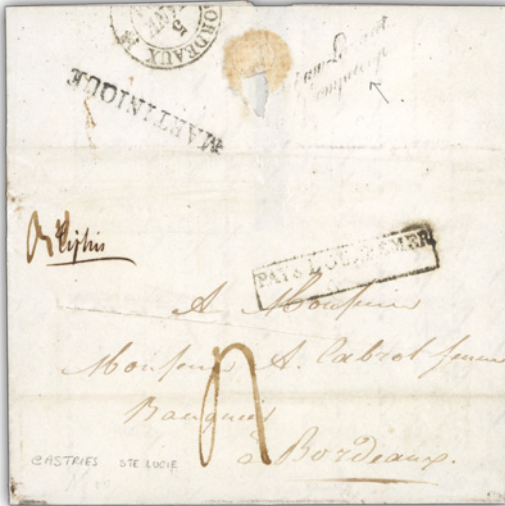 BORDEAUX
5
MARTINIQUE
PAYS D'OUTREMER
A Monsieur
Monsieur A. Cabrol jeune
Banquier
à Bordeaux.
CASTRIES STE LUCIE